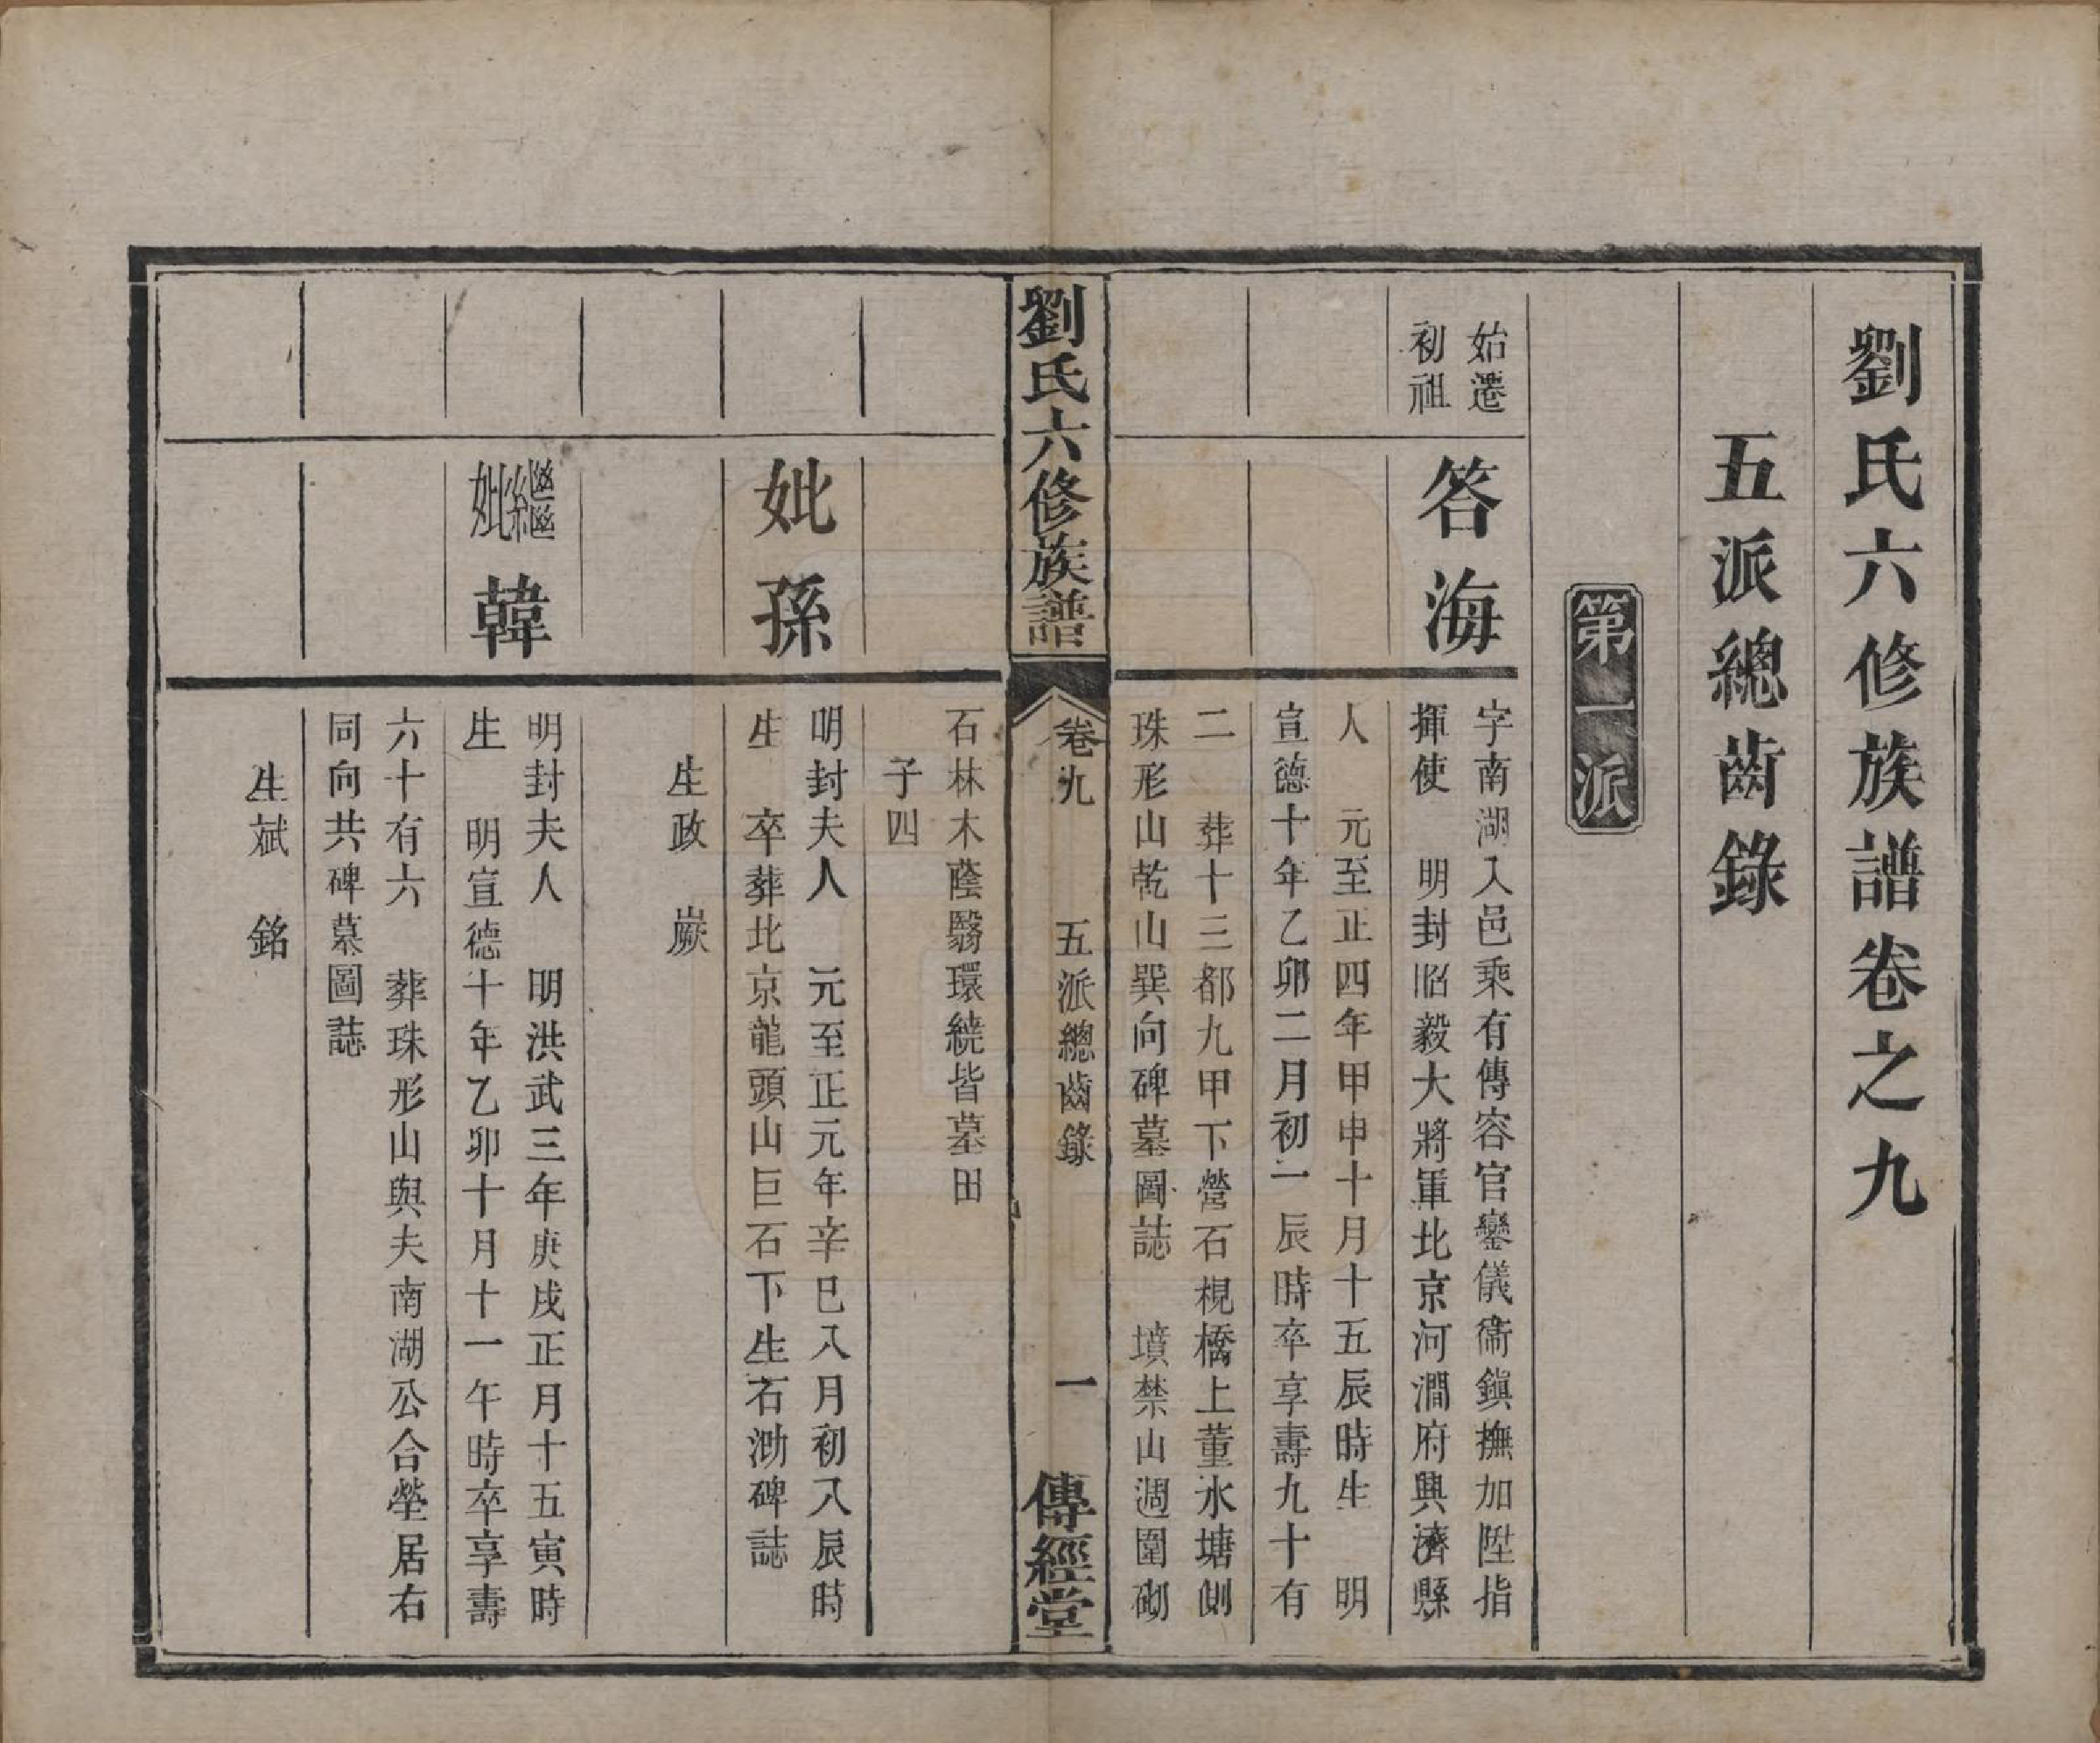 劉氏六修族譜卷之九
五派總齒錄
第一派
始遷
初祖
答海
字南湖入邑乘有傳容官鑾儀衞鎮撫加陞指
揮使　明封昭毅大將軍北京河澗府興濟縣
人　元至正四年甲申十月十五辰時生　明
宣德十年乙卯二月初一辰時卒享壽九十有
二　葬十三都九甲下營石梘橋上董水塘側
珠形山乾山巽向碑墓圖誌　墳禁山週圍砌
劉氏六修族譜
卷九　五派總齒錄　一
傳經堂
石林木蔭翳環繞皆墓田
子四
妣孫
明封夫人　元至正元年辛巳入月初入辰時
生　卒葬北京龍頭山巨石下生石泐碑誌
生政　嶡
繼妣韓
明封夫人　明洪武三年庚戌正月十五寅時
生　明宣德十年乙卯十月十一午時卒享壽
六十有六　葬珠形山與夫南湖公合塋居右
同向共碑墓圖誌
生斌　銘